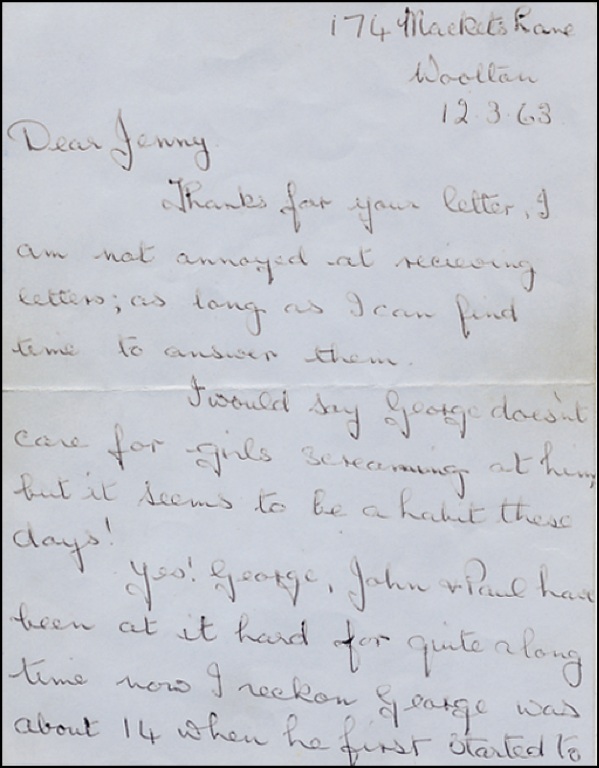 174 Mackets Lane
Woolton
12.3.63
Dear Jenny
Thanks for your letter, I
am not annoyed at recieving
letters; as long as I can find
time to answer them.
I would say George doesn't
care for girls screaming at him,
but it seems to be a habit these
days!
Yes! George, John & Paul have
been at it hard for quite a long
time now I reckon George was
about 14 when he first started to